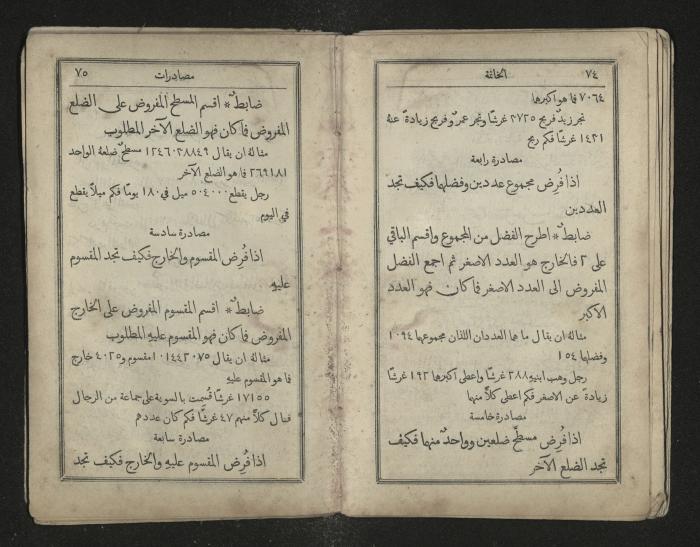 ٧٤ الخاتمة
٧٠٦٤ فما هو اكبرها
تجر زيدٌ فربح ٢٧٢٥ غرشًا وتجر عمرٌو فربح زيادةً عنهُ
١٤٣١ غرشًا فكم ربح
مصادرة رابعة
اذا فُرِض مجموع عددين وفضلها فكيف تجد
العددين
ضابطٌ * اطرح الفضل من المجموع واقسم الباقي
على ٢ فالخارج هو العدد الاصغر ثم اجمع الفضل
المفروض الى العدد الاصغر فما كان فهو العدد
الاكبر
مثالهُ ان يقال ما هما العددان اللذان مجموعها ١٠٩٤
وفضلها ١٥٤
رجل وهب ابنيهِ ٢٨٨ غرشًا واعطى اكبرها ١٩٢ غرشًا
زيادة عن الاصغر فكم اعطى كلاًّ منها
مصادرة خامسة
اذا فُرِض مسطح ضلعين وواحدٌ منها فكيف
تجد الضلع الآخر
مصادرات ٧٥
ضابطٌ * اقسم المسطح المفروض على الضلع
المفروض فما كان فهو الضلع الآخر المطلوب
مثالهُ ان يقال ١٢٤٦٠٣٨٨٤٩ مسطحٌ ضلعهُ الواحد
٢٦٩١٨١ فما هو الضلع الآخر
رجل يقطع ٥٠٤٠٠٠ ميل في ١٨٠ يومًا فكم ميلاً يقطع
في اليوم
مصادرة سادسة
اذا فُرِض المقسوم والخارج فكيف تجد المقسوم
عليهِ
ضابطٌ * اقسم المقسوم المفروض على الخارج
المفروض فما كان فهو المقسوم عليهِ المطلوب
مثالهُ ان يقال ١٠١٤٤٢٠٧٥ مقسوم و٤٠٢٥ خارج
فما هو المقسوم عليهِ
١٧١٥٥ غرشًا قُسمت بالسوية على جماعة من الرجال
فنال كلاًّ منهم ٤٧ غرشًا فكم كان عددهم
مصادرة سابعة
اذا فُرِض المقسوم عليهِ والخارج فكيف تجد